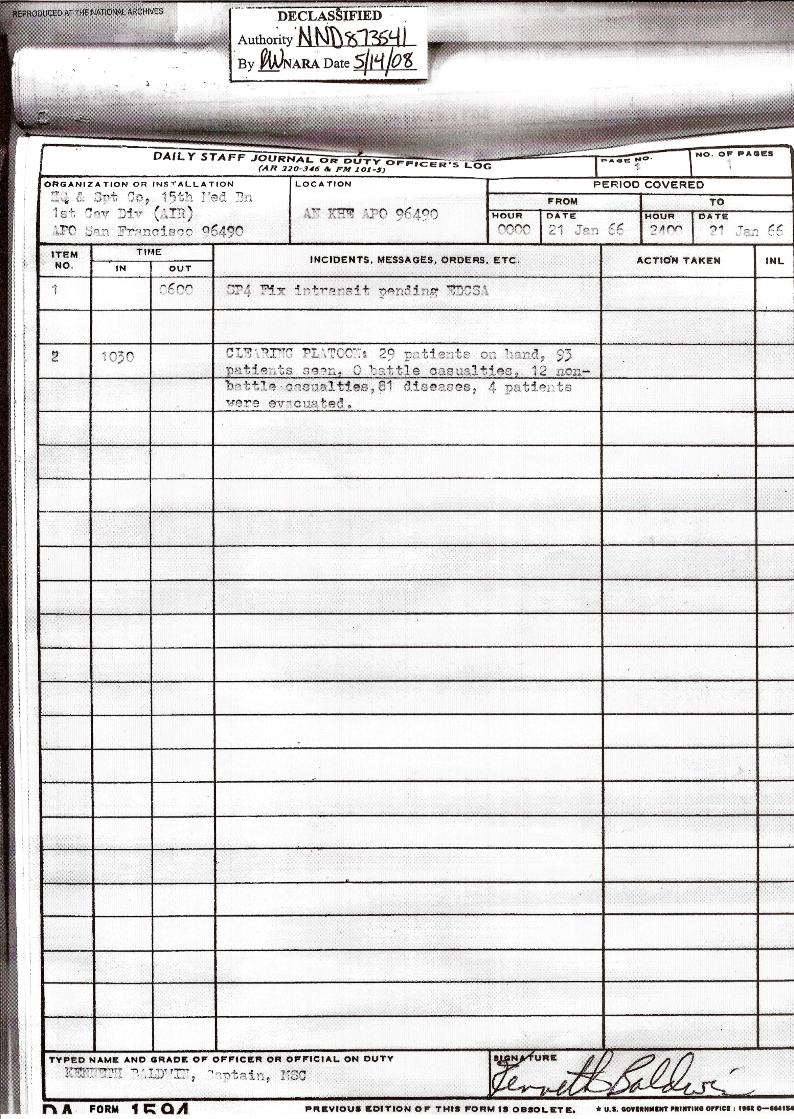 REPRODUCED AT THE NATIONAL ARCHIVES
DECLASSIFIED
Authority NND873541
By RW NARA Date 5/14/08
DAILY STAFF JOURNAL OR DUTY OFFICER'S LOG
(AR 220-346 & FM 101-5)
PAGE NO.
1
NO. OF PAGES
1
ORGANIZATION OR INSTALLATION
HQ & Spt Co, 15th Med Bn
1st Cav Div (AIR)
APO San Francisco 96490
LOCATION
AN KHE APO 96490
PERIOD COVERED
FROM
TO
HOUR
DATE
HOUR
DATE
0000
21 Jan 66
2400
21 Jan 66
ITEM NO.
TIME
IN
OUT
INCIDENTS, MESSAGES, ORDERS, ETC.
ACTION TAKEN
INL
1 0600 SP4 Fix intransit pending EDCSA
2 1030 CLEARING PLATOON: 29 patients on hand, 93
patients seen, 0 battle casualties, 12 non-
battle casualties,81 diseases, 4 patients
were evacuated.
TYPED NAME AND GRADE OF OFFICER OR OFFICIAL ON DUTY
KENNETH BALDWIN, Captain, MSC
SIGNATURE
Kenneth Baldwin
DA FORM 1594
PREVIOUS EDITION OF THIS FORM IS OBSOLETE.
* U.S. GOVERNMENT PRINTING OFFICE: 1962 O-664154